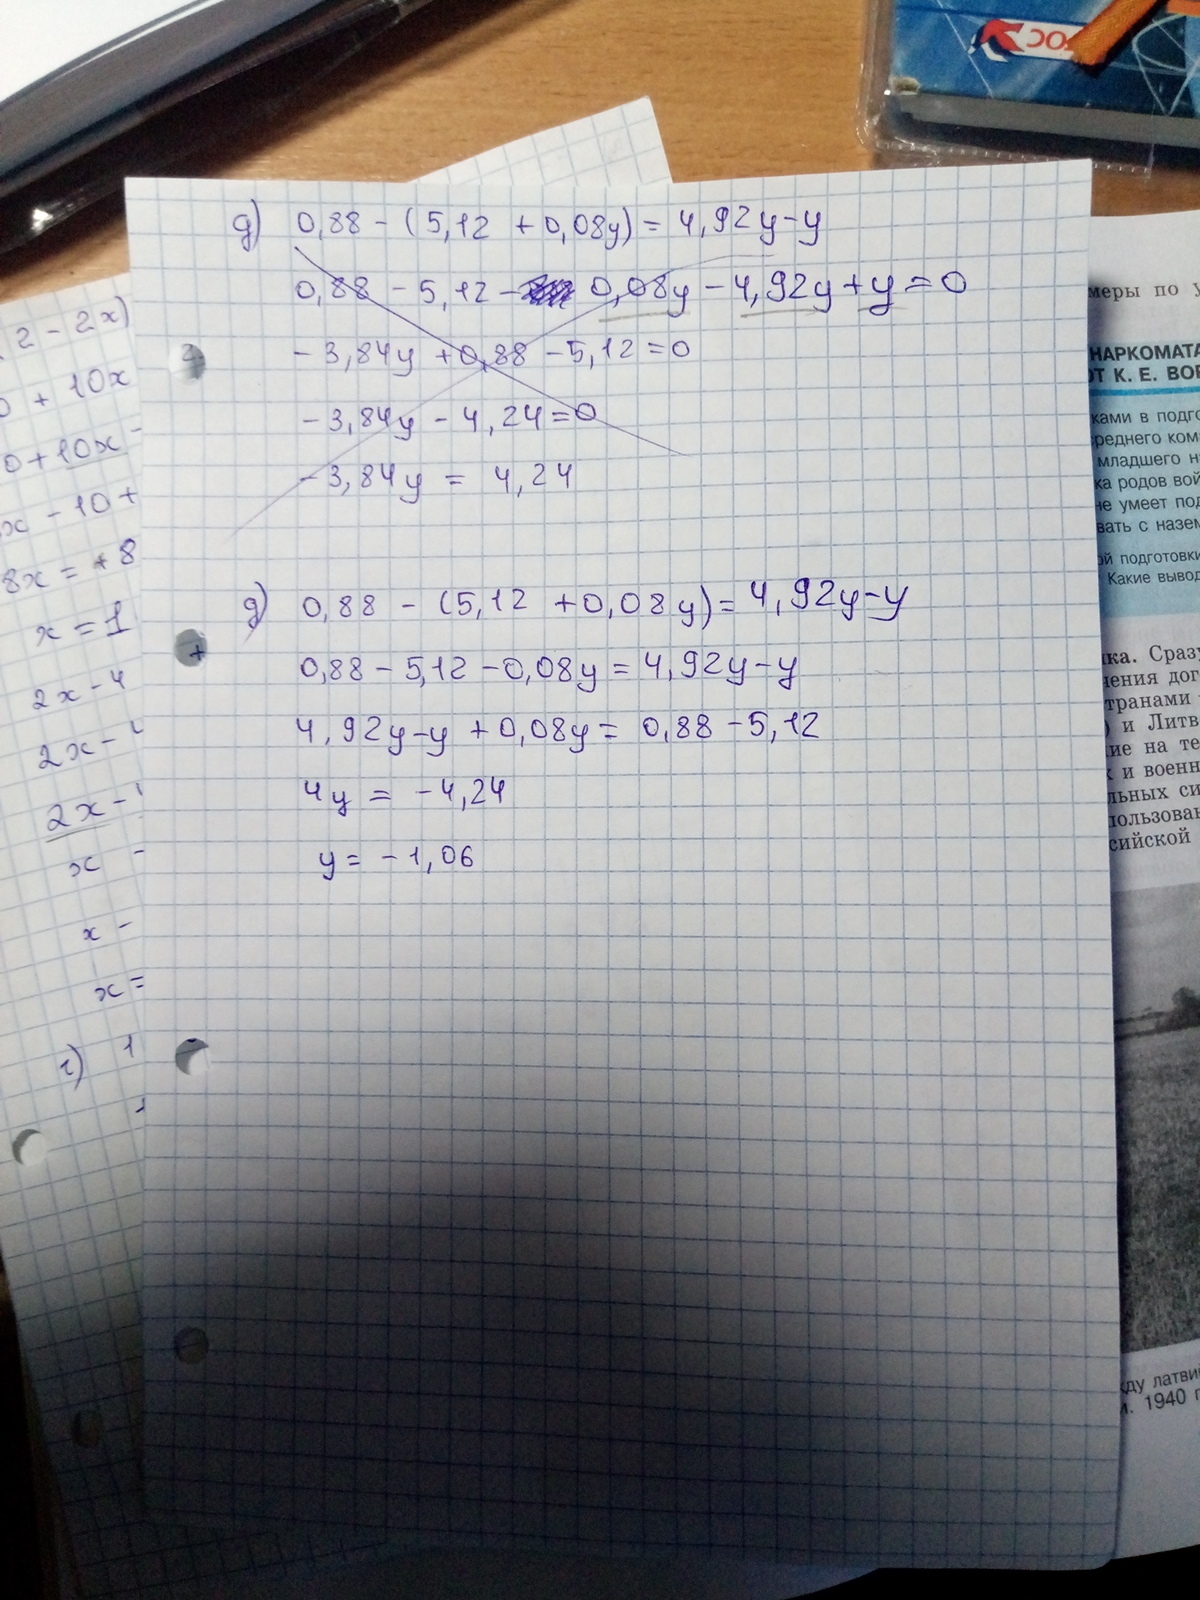 д) 0,88 - (5,12 + 0,08y) = 4,92y - y
0,88 - 5,12 - 0,08y - 4,92y + y = 0
- 3,84y + 0,88 - 5,12 = 0
- 3,84y - 4,24 = 0
- 3,84y = 4,24
д) 0,88 - (5,12 + 0,08y) = 4,92y - y
0,88 - 5,12 - 0,08y = 4,92y - y
4,92y - y + 0,08y = 0,88 - 5,12
4y = - 4,24
y = - 1,06
2 - 2x)
0 + 10x
0 + 10x -
x - 10 +
8x = + 8
x = 1
2x - 4
2x -
2x -
x -
x -
x =
г) 1
РОС
меры по у
НАРКОМАТА
ОТ К. Е. ВОР
ками в подго
среднего ком
младшего н
ка родов вой
не умеет под
вать с назем
ой подготовки
Какие вывод
ка. Сразу
чения дог
транами
) и Литв
ие на те
к и военн
льных си
пользован
сийской
жду латви
и. 1940 г